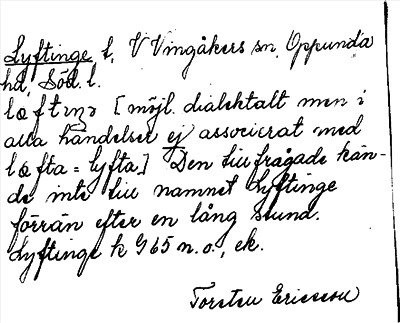 Lyftinge t, V Vingåkers sn, Oppunda
hd, Söd. l.
lœftɩŋɜ [möjl. dialektalt men i
alla händelser ej associerat med
lœfta = lyfta.] Den tillfrågade kän-
de inte till namnet Lyftinge
förrän efter en lång stund.
Lyftinge k 965 n. o., ek.
Torsten Ericsson